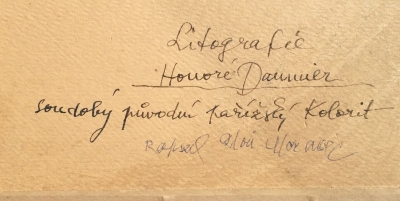 Litografie
Honoré Daumier
soudobý původní pařížský Kolorit